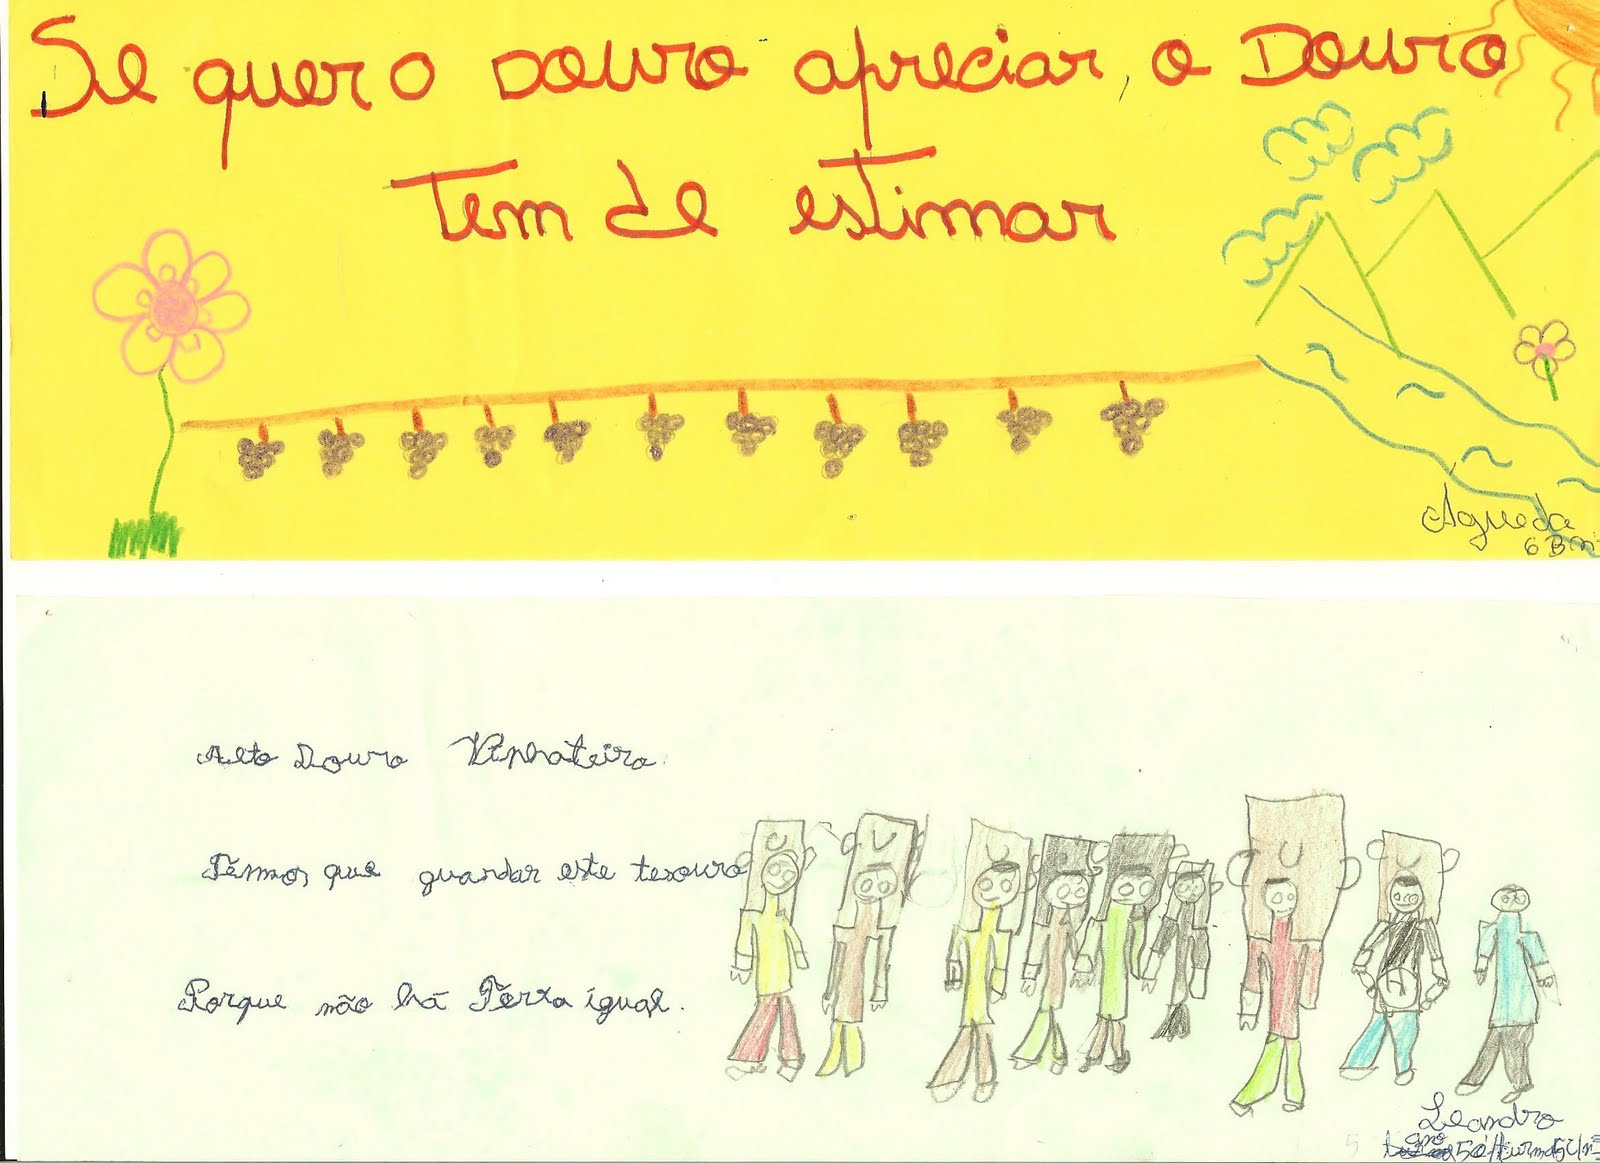 Se quer o Douro apreciar, o Douro
Tem de estimar
Agueda
6 B nº
Alto Douro Vinhateiro.
Temos que guardar este tesouro
Porque não há Terra igual.
Leandro
ano 5º/turma 5C/nº